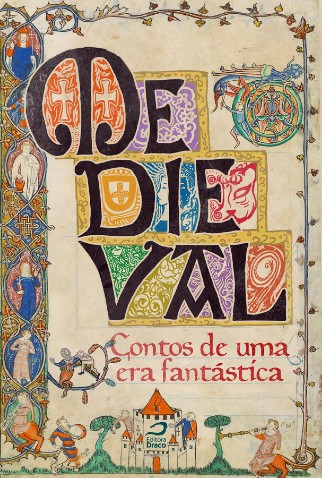 ME
DIE
VAL
Contos de uma
era fantástica
Editora
Draco